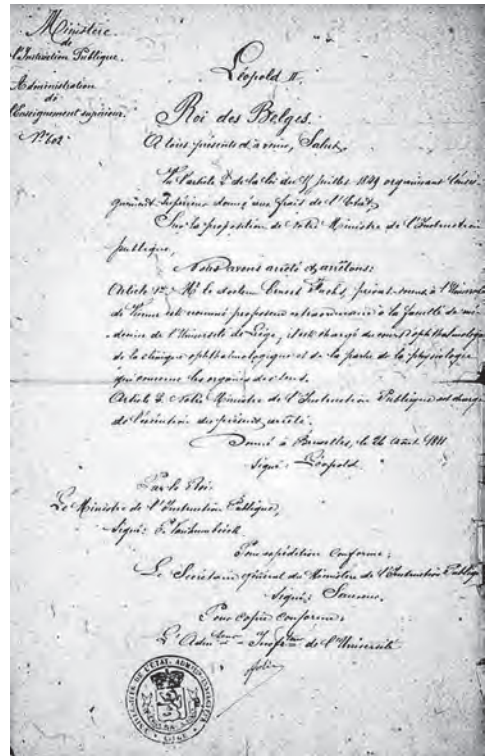 Ministère
de
l'Instruction Publique.
Administration
de
l'Enseignement supérieur.
Nº 602
Léopold II.
Roi des Belges.
A tous présents et à venir, Salut.
Vu l'article de la loi du 15 juillet 1849 organisant l'ensei-
gnement supérieur donné aux frais de l'Etat,
Sur la proposition de Notre Ministre de l'Instruction
publique,
Nous avons arrêté et arrêtons:
Article 1er Mr le docteur Ernest Fuchs, privat-docent à l'Université
de Vienne est nommé professeur extraordinaire à la faculté de mé-
decine de l'Université de Liége, il est chargé du cours d'ophthalmologie
de la clinique ophthalmologique et de la partie de la physiologie
qui concerne les organes des sens.
Article 2. Notre Ministre de l'Instruction Publique est chargé
de l'exécution du présent arrêté.
Donné à Bruxelles, le 26 Août 1881
Signé: Léopold.
Par le Roi:
Le Ministre de l'Instruction Publique,
Signé: P. Vanhumbéeck
Pour expédition conforme:
Le Secrétaire général du Ministère de l'Instruction Publique
Signé:
Pour copie conforme:
L'Admteur - Inspteur de l'Université